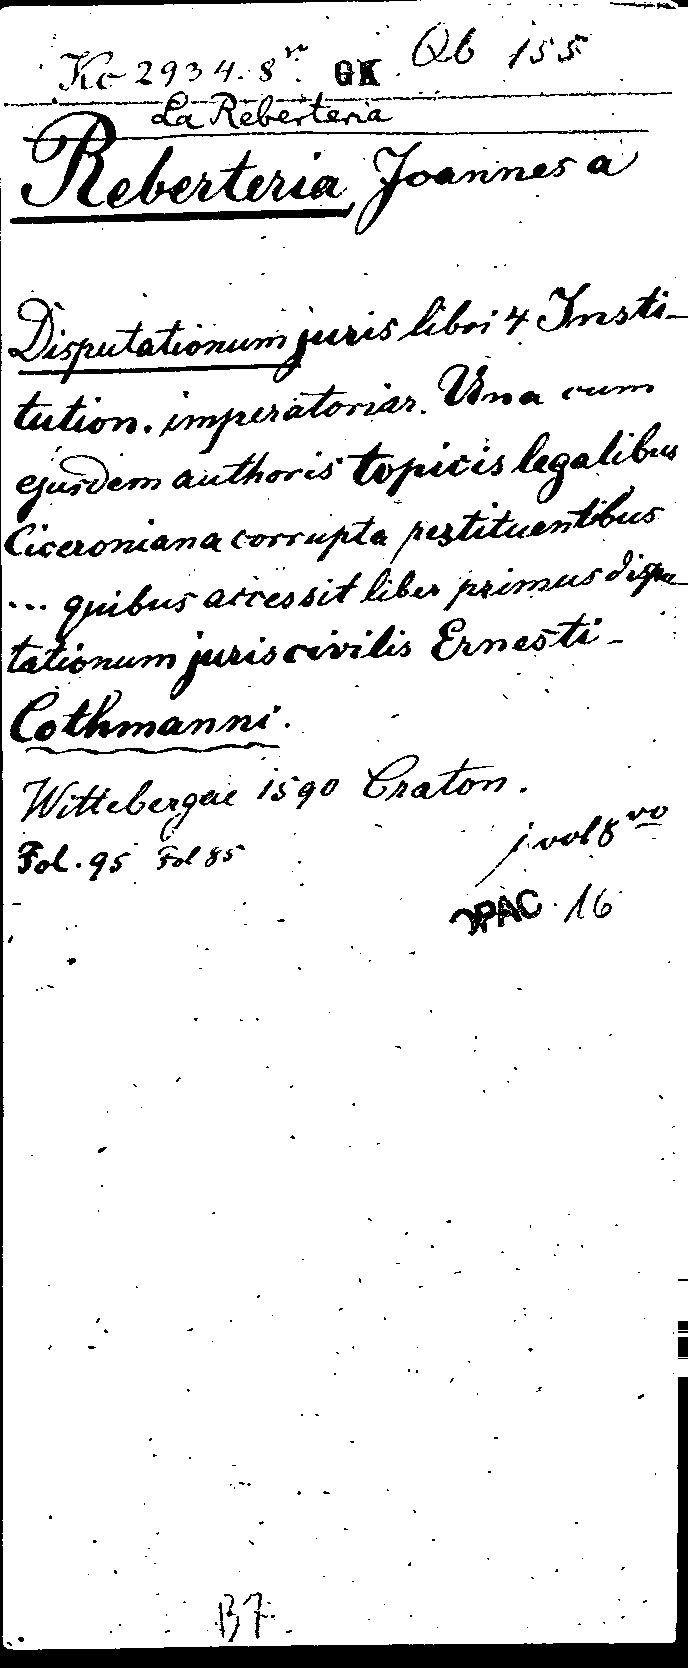 Kc 2934. 8vo. GK Qb 155
La Reberteria
Reberteria, Joannes a
Disputationum juris libri 4 Insti-
tution. imperatoriar. Una cum
ejusdem authoris topicis legalibus
Ciceroniana corrupta restituentibus
... quibus accessit liber primus dispu-
tationum juris civilis Ernesti-
Cothmanni.
Wittebergae 1590 Craton.
Fol. 95 Fol 85
j vol 8vo
OPAC 16
B7